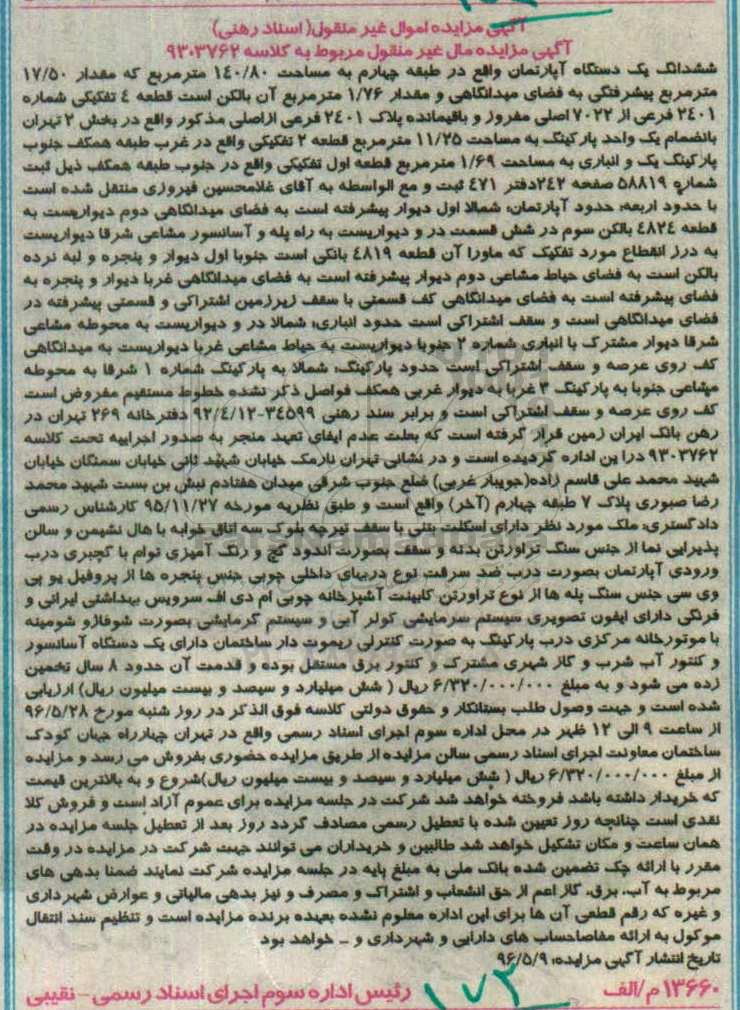 آگهی مزایده اموال غیر منقول( اسناد رهنی)
آگهی مزایده مال غیر منقول مربوط به کلاسه ۹۳۰۳۷۶۲
ششدانگ یک دستگاه آپارتمان واقع در طبقه چهارم به مساحت ۱۴۰/۸۰ مترمربع که مقدار ۱۷/۵۰
مترمربع پیشرفتگی به فضای میدانگاهی و مقدار ۱/۷۶ مترمربع آن بالکن است قطعه ٤ تفکیکی شماره
۲٤۰۱ فرعی از ۷۰۲۲ اصلی مفروز و باقیمانده پلاک ۲٤۰۱ فرعی ازاصلی مذکور واقع در بخش ۲ تهران
بانضمام یک واحد پارکینگ به مساحت ۱۱/۲۵ مترمربع قطعه ۲ تفکیکی واقع در غرب طبقه همکف جنوب
پارکینگ یک و انباری به مساحت ۱/۶۹ مترمربع قطعه اول تفکیکی واقع در جنوب طبقه همکف ذیل ثبت
شماره ۵۸۸۱۹ صفحه ۲٤۲دفتر ٤۷۱ ثبت و مع الواسطه به آقای غلامحسین فیروزی منتقل شده است
با حدود اربعه: حدود آپارتمان: شمالا اول دیوار پیشرفته است به فضای میدانگاهی دوم دیواریست به
قطعه ٤۸۲٤ بالکن سوم در شش قسمت در و دیواریست به راه پله و آسانسور مشاعی شرقا دیواریست
به درز انقطاع مورد تفکیک که ماورا آن قطعه ٤۸۱۹ بانکی است جنوبا اول دیوار و پنجره و لبه نرده
بالکن است به فضای حیاط مشاعی دوم دیوار پیشرفته است به فضای میدانگاهی غربا دیوار و پنجره به
فضای پیشرفته است به فضای میدانگاهی کف قسمتی با سقف زیرزمین اشتراکی و قسمتی پیشرفته در
فضای میدانگاهی است و سقف اشتراکی است حدود انباری: شمالا در و دیواریست به محوطه مشاعی
شرقا دیوار مشترک با انباری شماره ۲ جنوبا دیواریست به حیاط مشاعی غربا دیواریست به میدانگاهی
کف روی عرصه و سقف اشتراکی است حدود پارکینگ: شمالا به پارکینگ شماره ۱ شرقا به محوطه
مشاعی جنوبا به پارکینگ ۳ غربا به دیوار غربی همکف فواصل ذکر نشده خطوط مستقیم مفروض است
کف روی عرصه و سقف اشتراکی است و برابر سند رهنی ۳٤۵۹۹-۹۲/٤/۱۲ دفترخانه ۲۶۹ تهران در
رهن بانک ایران زمین قرار گرفته است که بعلت عدم ایفای تعهد منجر به صدور اجراییه تحت کلاسه
۹۳۰۳۷۶۲ دراین اداره گردیده است و در نشانی تهران نارمک خیابان شهید ثانی خیابان سمنگان خیابان
شهید محمد علی قاسم زاده(جویبار غربی) ضلع جنوب شرقی میدان هفتادم نبش بن بست شهید محمد
رضا صبوری پلاک ۷ طبقه چهارم (آخر) واقع است و طبق نظریه مورخه ۹۵/۱۱/۲۷ کارشناس رسمی
دادگستری: ملک مورد نظر دارای اسکلت بتنی با سقف تیرچه بلوک سه اتاق خوابه با هال نشیمن و سالن
پذیرایی نما از جنس سنگ تراورتن بدنه و سقف بصورت اندود گچ و رنگ آمیزی توام با گچبری درب
ورودی آپارتمان بصورت درب ضد سرقت نوع دربهای داخلی چوبی جنس پنجره ها از پروفیل یو پی
وی سی جنس سنگ پله ها از نوع تراورتن کابینت آشپزخانه چوبی ام دی اف سرویس بهداشتی ایرانی و
فرنگی دارای ایفون تصویری سیستم سرمایشی کولر آبی و سیستم گرمایشی بصورت شوفاژو شومینه
با موتورخانه مرکزی درب پارکینگ به صورت کنترلی ریموت دار ساختمان دارای یک دستگاه آسانسور
و کنتور آب شرب و گاز شهری مشترک و کنتور برق مستقل بوده و قدمت آن حدود ۸ سال تخمین
زده می شود و به مبلغ ۶/۳۲۰/۰۰۰/۰۰۰ ریال ( شش میلیارد و سیصد و بیست میلیون ریال) ارزیابی
شده است و جهت وصول طلب بستانکار و حقوق دولتی کلاسه فوق الذکر در روز شنبه مورخ ۹۶/۵/۲۸
از ساعت ۹ الی ۱۲ ظهر در محل اداره سوم اجرای اسناد رسمی واقع در تهران چهارراه جهان کودک
ساختمان معاونت اجرای اسناد رسمی سالن مزایده از طریق مزایده حضوری بفروش می رسد و مزایده
از مبلغ ۶/۳۲۰/۰۰۰/۰۰۰ ریال ( شش میلیارد و سیصد و بیست میلیون ریال)شروع و به بالاترین قیمت
که خریدار داشته باشد فروخته خواهد شد شرکت در جلسه مزایده برای عموم آزاد است و فروش کلا
نقدی است چنانچه روز تعیین شده با تعطیل رسمی مصادف گردد روز بعد از تعطیل جلسه مزایده در
همان ساعت و مکان تشکیل خواهد شد طالبین و خریداران می توانند جهت شرکت در مزایده در وقت
مقرر با ارائه چک تضمین شده بانک ملی به مبلغ پایه در جلسه مزایده شرکت نمایند ضمنا بدهی های
مربوط به آب، برق، گاز اعم از حق انشعاب و اشتراک و مصرف و نیز بدهی مالیاتی و عوارض شهرداری
و غیره که رقم قطعی آن ها برای این اداره معلوم نشده بعهده برنده مزایده است و تنظیم سند انتقال
موکول به ارائه مفاصاحساب های دارایی و شهرداری و ... خواهد بود
تاریخ انتشار آگهی مزایده: ۹۶/۵/۹
۱۳۶۶۰م/الف رئیس اداره سوم اجرای اسناد رسمی - نقیبی
۱۷۳